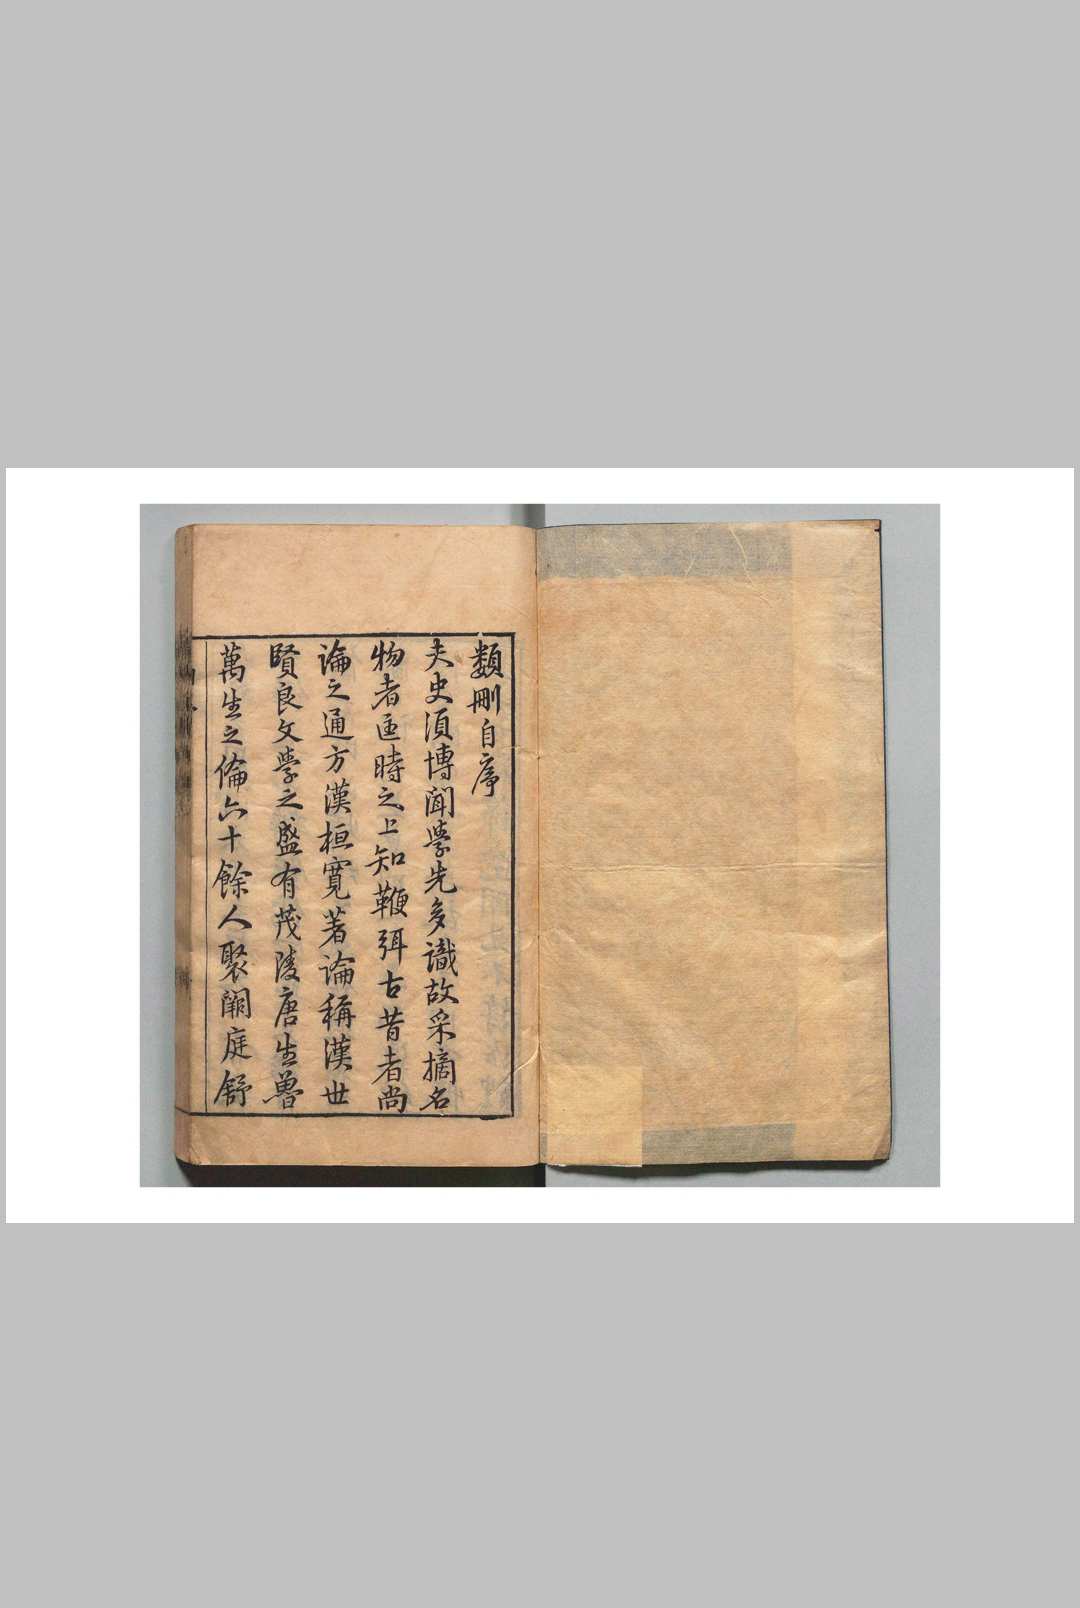 類刪自序
夫史須博聞學先多識故采摘名
物者匡時之上知鞭弭古昔者尚
論之通方漢桓寬著論稱漢世
賢良文學之盛有茂陵唐生魯
萬生之倫六十餘人聚闕庭舒